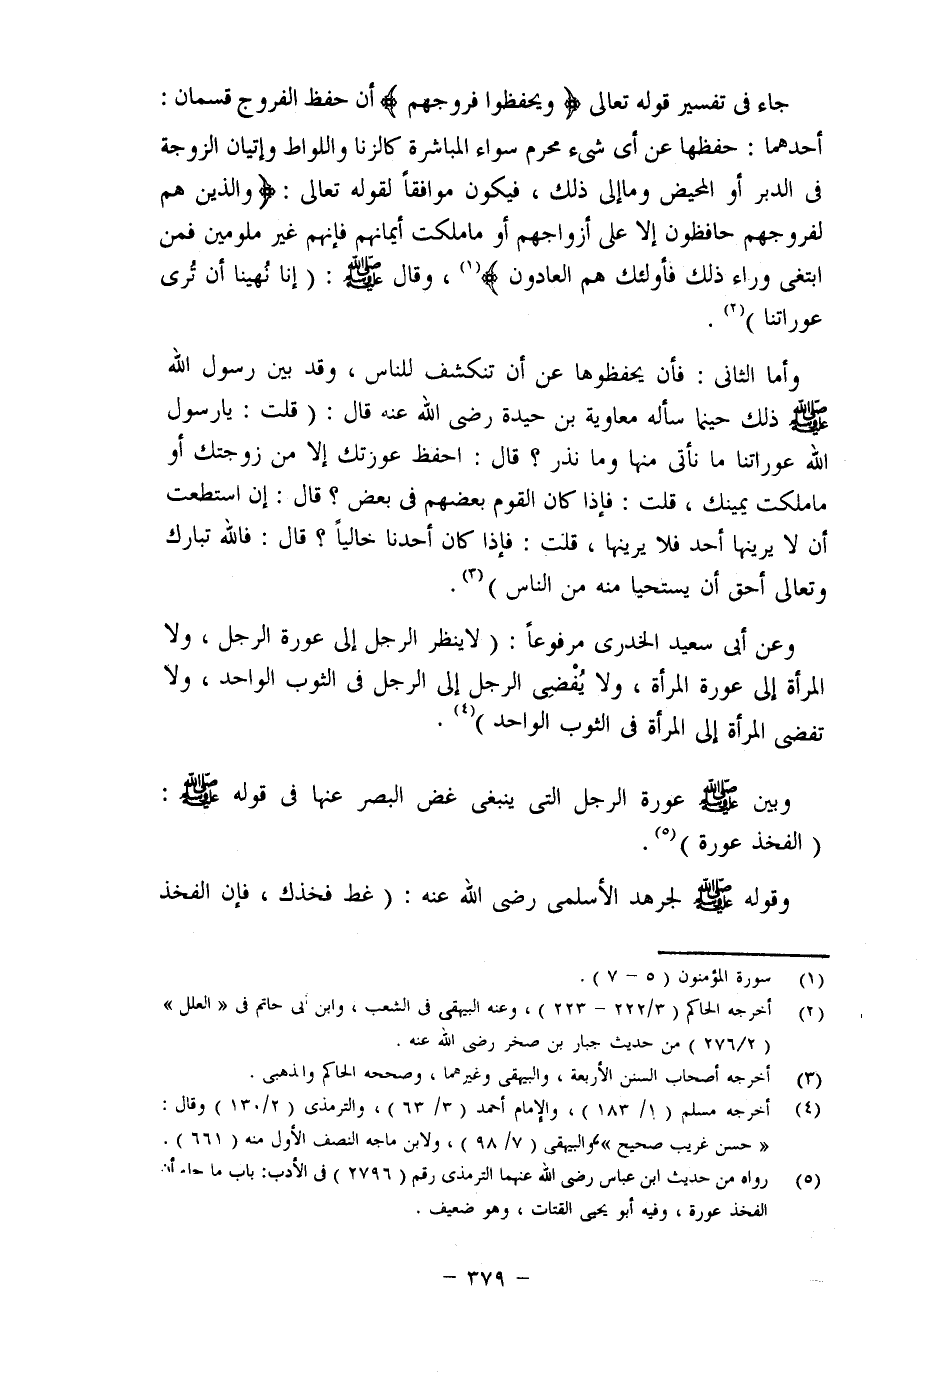 جاء فى تفسير قوله تعالى ﴿ ويحفظوا فروجهم ﴾ أن حفظ الفروج قسمان :
أحدهما : حفظها عن أى شىء محرم سواء المباشرة كالزنا واللواط وإتيان الزوجة
فى الدبر أو المحيض وماإلى ذلك ، فيكون موافقاً لقوله تعالى : ﴿ والذين هم
لفروجهم حافظون إلا على أزواجهم أو ماملكت أيمانهم فإنهم غير ملومين فمن
ابتغى وراء ذلك فأولئك هم العادون ﴾(١) ، وقال ﷺ : ( إنا نُهينا أن تُرى
عوراتنا )(٢) .
وأما الثانى : فأن يحفظوها عن أن تنكشف للناس ، وقد بين رسول الله
ﷺ ذلك حينما سأله معاوية بن حيدة رضى الله عنه قال : ( قلت : يارسول
الله عوراتنا ما نأتى منها وما نذر ؟ قال : احفظ عورتك إلا من زوجتك أو
ماملكت يمينك ، قلت : فإذا كان القوم بعضهم فى بعض ؟ قال : إن استطعت
أن لا يرينها أحد فلا يرينها ، قلت : فإذا كان أحدنا خالياً ؟ قال : فالله تبارك
وتعالى أحق أن يستحيا منه من الناس )(٣) .
وعن أبى سعيد الخدرى مرفوعاً : ( لاينظر الرجل إلى عورة الرجل ، ولا
المرأة إلى عورة المرأة ، ولا يُفْضِى الرجل إلى الرجل فى الثوب الواحد ، ولا
تفضى المرأة إلى المرأة فى الثوب الواحد )(٤) .
وبين ﷺ عورة الرجل التى ينبغى غض البصر عنها فى قوله ﷺ :
( الفخذ عورة )(٥) .
وقوله ﷺ لجرهد الأسلمى رضى الله عنه : ( غط فخذك ، فإن الفخذ
(١) سورة المؤمنون ( ٥ – ٧ ) .
(٢) أخرجه الحاكم ( ٢٢٢/٣ – ٢٢٣ ) ، وعنه البيهقى فى الشعب ، وابن أبى حاتم فى « العلل »
( ٢٧٦/٢ ) من حديث جبار بن صخر رضى الله عنه .
(٣) أخرجه أصحاب السنن الأربعة ، والبيهقى وغيرهما ، وصححه الحاكم والذهبى .
(٤) أخرجه مسلم ( ١/ ١٨٣ ) ، والإمام أحمد ( ٣/ ٦٣ ) ، والترمذى ( ١٣٠/٢ ) وقال :
« حسن غريب صحيح » والبيهقى ( ٧/ ٩٨ ) ، ولابن ماجه النصف الأول منه ( ٦٦١ ) .
(٥) رواه من حديث ابن عباس رضى الله عنهما الترمذى رقم ( ٢٧٩٦ ) فى الأدب: باب ما جاء أن
الفخذ عورة ، وفيه أبو يحيى القتات ، وهو ضعيف .
– ٣٧٩ –